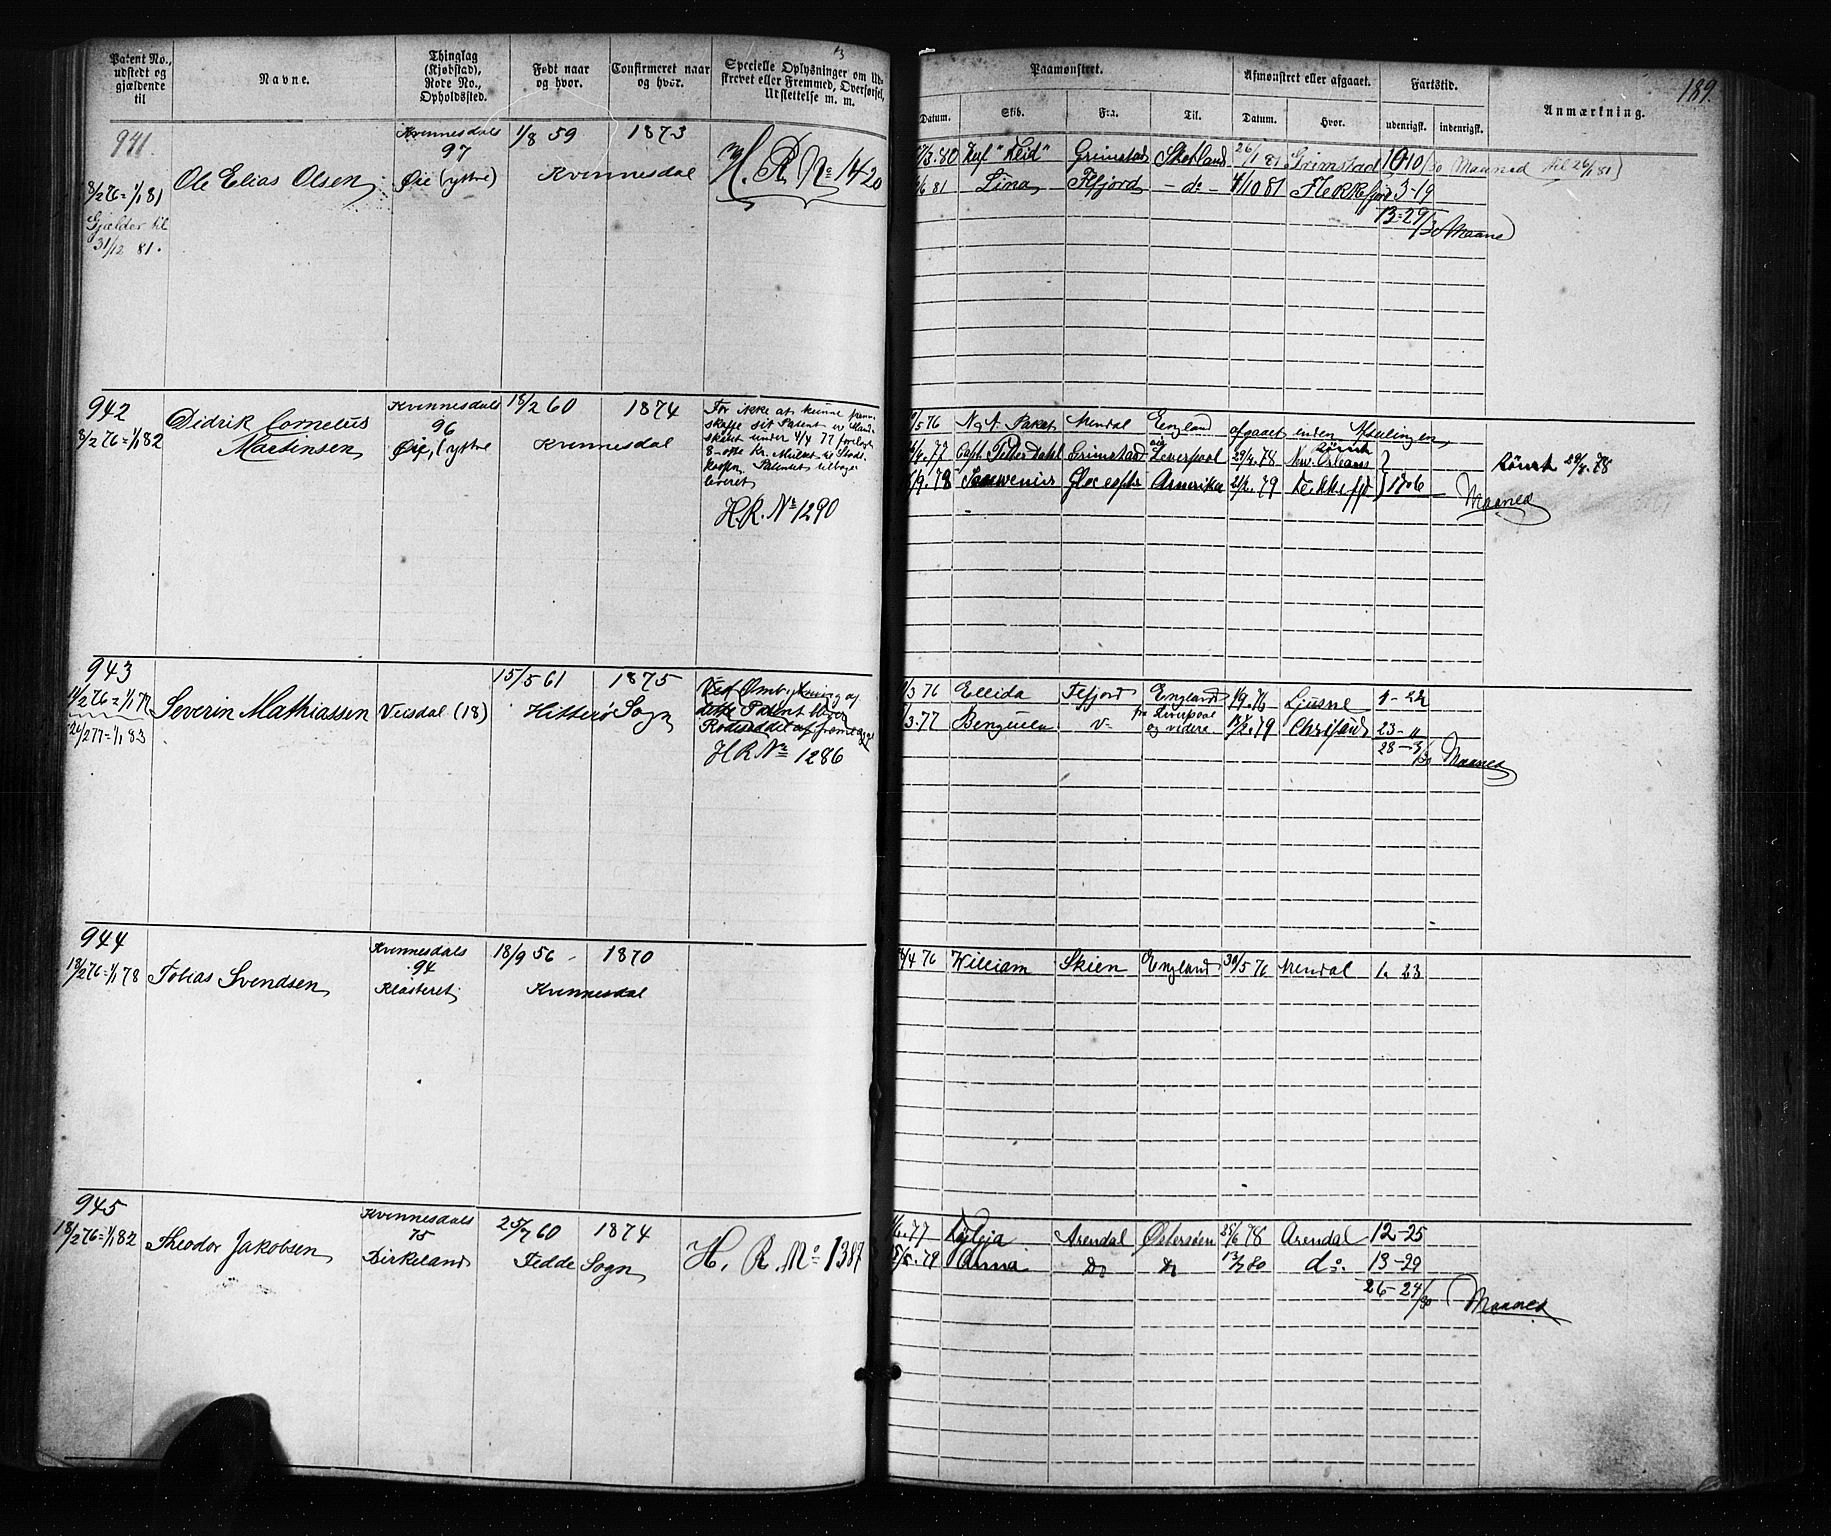 189.
Patent No., udstedt og gjældende til
Navne.
Thinglag (Kjøbstad), Rode No., Opholdssted.
Født naar og hvor.
Confirmeret naar og hvor.
Specielle Oplysninger om Udskrevet eller Fremmed, Overførsel, Udslettelse m. m.
Paamønstret.
Afmønstret eller afgaaet.
Fartstid.
Anmærkning.
Datum. Skib. Fra. Til. Datum. Hvor. udenrigsk. indenrigsk.
941.
8/2 76 = 1/1 81
Gjælder til
31/12 81.
Ole Elias Olsen
Kvinnesdals
97
Øie (ystre)
1/8 59
1873
Kvinnesdal
H. R. No 1420
/3. 80 "Leid" Grimstad Shetland 26/1 81 Grimstad 10 10/30 Maaned til 26/1 81)
/6 81 Lina Ffjord - do - 4/10 81 Flekkefjord 3-19
13-29/30 Maane
942
8/2 76 = 1/1 82
Didrik Cornelius
Martinsen
Kvinnesdals
96
Øie, (ystre
18/2 60
1874
Kvinnesdal
For ikke at kunne frem-
skaffe sit Patent er
under 4/4 77
8 - otte Kr. Mulkt
Patentet tilbage
leveret
H. R. No 1290
/5 76 Mandal England afgaaet uden Afdelingen
/4. 77 Capt. Petter Dahl Grimstad Liverpool 29/4. 78 New Orleans
Rømt
Rømt 29/4. 78
/9. 78 Souvenir Amerika 21/2. 79 17-6
Maaned
943
14/2 76 = 1/1 77
24/2 77 = 1/1 83
Severin Mathiassen
Veisdal (18)
15/5 61
1875
Hitterø Sogn
Ved af
dette Patent bliver
Rodeseddel at fremlægge
H R No 1286
/3 76 Ellida Ffjord England Ljusne 4-22
/3. 77 Benguela fra Liverpool
og videre 13/2. 79 Chrisand 23-11
28-3/30 Maaned
944
18/2 76 = 1/1 78
Tobias Svendsen
Kvinnesdals
94
Klosteret
18/9 56
1870
Kvinnesdal
/4 76 William Skien England 30/5 76 Mandal 1. 23
945
18/2 76 = 1/1 82
Theodor Jakobsen
Kvinnesdals
75
Birkeland
25/7 60
1874
Fedde Sogn
H. R. No 1387
/6. 77 Arendal Østersøen 25/6 78 Arendal 12-25
/5. 79 Anna Do Do 13/7 80 do. 13-29
26-24/30 Maaned